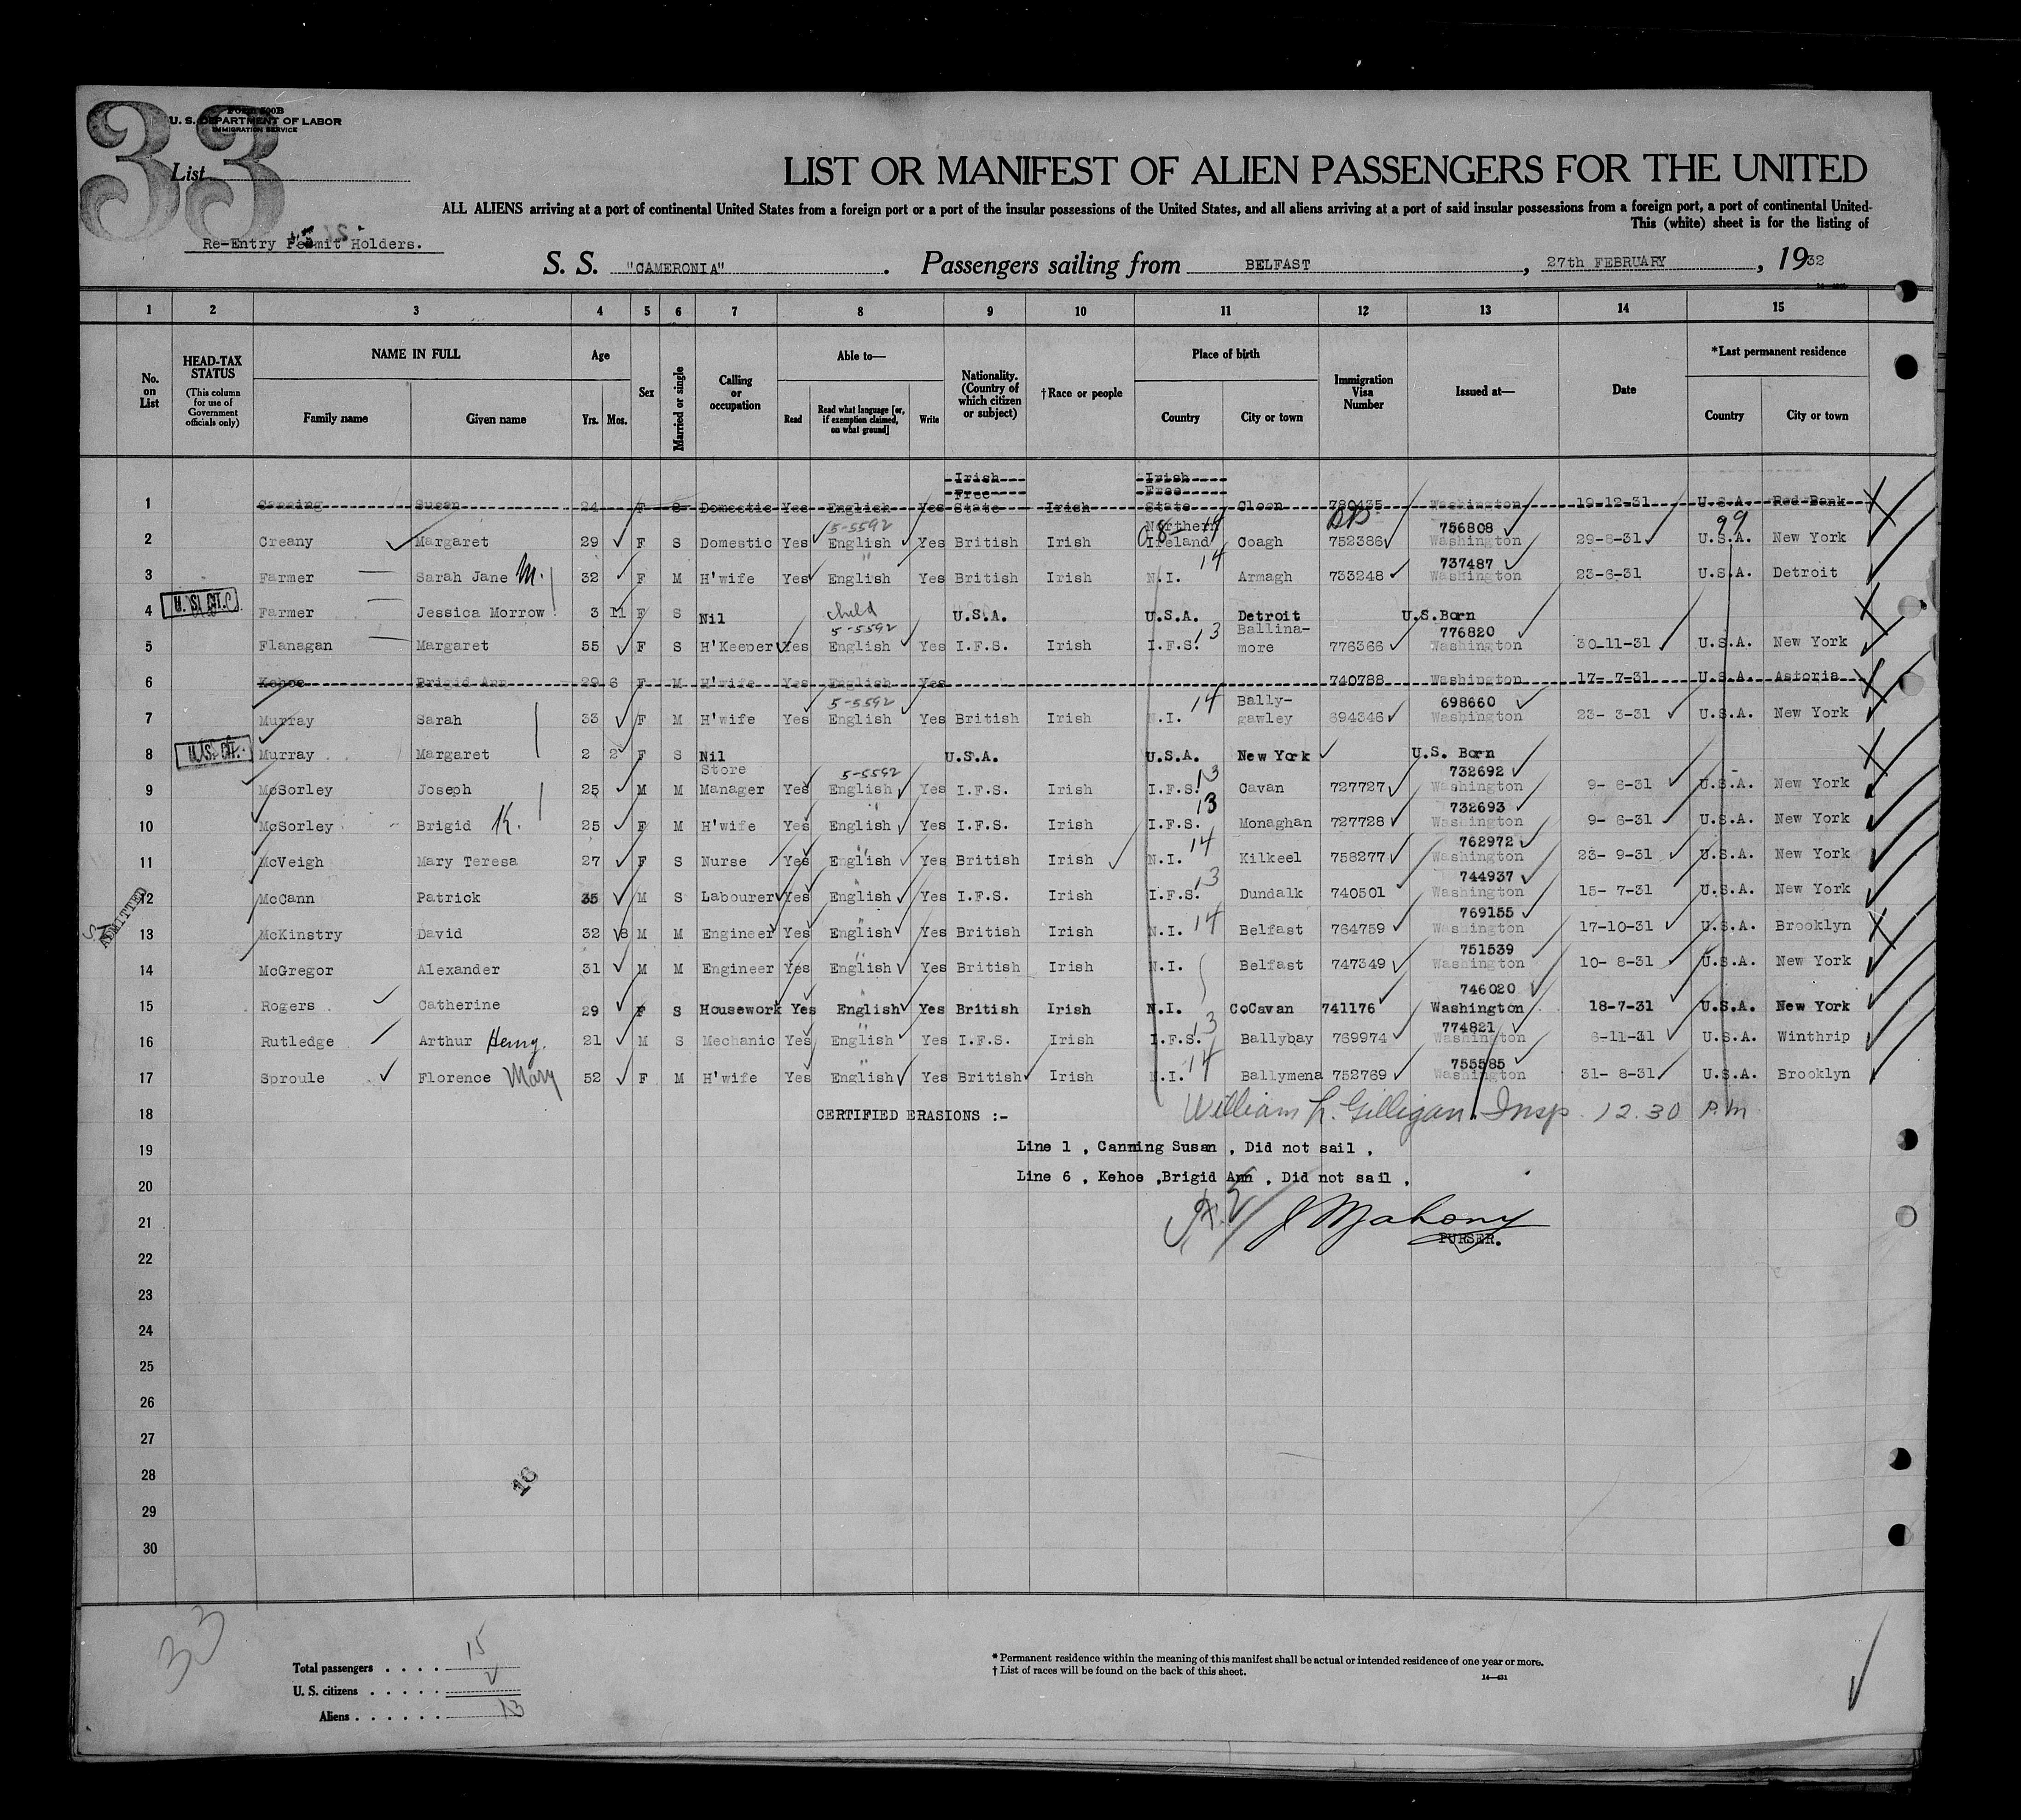 33
FORM 500B
U. S. DEPARTMENT OF LABOR
IMMIGRATION SERVICE
List
LIST OR MANIFEST OF ALIEN PASSENGERS FOR THE UNITED
ALL ALIENS arriving at a port of continental United States from a foreign port or a port of the insular possessions of the United States, and all aliens arriving at a port of said insular possessions from a foreign port, a port of continental United
This (white) sheet is for the listing of
Re-Entry Permit Holders.
S. S. "CAMERONIA". Passengers sailing from BELFAST, 27th FEBRUARY, 1932
1 2 3 4 5 6 7 8 9 10 11 12 13 14 15
No. on List
HEAD-TAX STATUS
(This column for use of Government officials only)
NAME IN FULL
Family name Given name
Age
Yrs. Mos.
Sex
Married or single
Calling or occupation
Able to—
Read
Read what language [or, if exemption claimed, on what ground]
Write
Nationality. (Country of which citizen or subject)
†Race or people
Place of birth
Country City or town
Immigration Visa Number
Issued at—
Date
*Last permanent residence
Country City or town
1 Canning Susan 24 F S Domestic Yes English Yes Irish Free State Irish Irish Free State Cloon 780435 Washington 19-12-31 U.S.A. Red Bank
5-5592 08- 14 99
2 Creany Margaret 29 F S Domestic Yes English Yes British Irish Northern Ireland Coagh 752386 756808 Washington 29-8-31 U.S.A. New York
3 Farmer Sarah Jane M. 32 F M H'wife Yes English " Yes British Irish N.I. 14 Armagh 733248 737487 Washington 23-6-31 U.S.A. Detroit
U. S. CIT.
4 Farmer Jessica Morrow 3 11 F S Nil child U.S.A. U.S.A. Detroit U.S.Born
5 Flanagan Margaret 55 F S H'Keeper Yes 5-5592 English Yes I.F.S. Irish I.F.S. 13 Ballina-more 776366 776820 Washington 30-11-31 U.S.A. New York
6 Kehoe Brigid Ann 29 6 F M H'wife Yes English Yes 740788 Washington 17- 7-31 U.S.A. Astoria
7 Murray Sarah 33 F M H'wife Yes 5-5592 English Yes British Irish N.I. 14 Bally-gawley 694346 698660 Washington 23- 3-31 U.S.A. New York
U. S. CIT.
8 Murray Margaret 2 2 F S Nil U.S.A. U.S.A. New York U.S. Born
9 McSorley Joseph 25 M M Store Manager Yes 5-5592 English Yes I.F.S. Irish I.F.S. 13 Cavan 727727 732692 Washington 9- 6-31 U.S.A. New York
10 McSorley Brigid K. 25 F M H'wife Yes " English Yes I.F.S. Irish I.F.S. 13 Monaghan 727728 732693 Washington 9- 6-31 U.S.A. New York
11 McVeigh Mary Teresa 27 F S Nurse Yes " English Yes British Irish N.I. 14 Kilkeel 758277 762972 Washington 23- 9-31 U.S.A. New York
12 McCann Patrick 35 M S Labourer Yes " English Yes I.F.S. Irish I.F.S. 13 Dundalk 740501 744937 Washington 15- 7-31 U.S.A. New York
ADMITTED
13 McKinstry David 32 8 M M Engineer Yes " English Yes British Irish N.I. 14 Belfast 764759 769155 Washington 17-10-31 U.S.A. Brooklyn
14 McGregor Alexander 31 M M Engineer Yes " English Yes British Irish N.I. Belfast 747349 751539 Washington 10- 8-31 U.S.A. New York
15 Rogers Catherine 29 F S Housework Yes English Yes British Irish N.I. CoCavan 741176 746020 Washington 18-7-31 U.S.A. New York
16 Rutledge Arthur Henry. 21 M S Mechanic Yes " English Yes I.F.S. Irish I.F.S. 13 Ballybay 769974 774821 Washington 6-11-31 U.S.A. Winthrip
17 Sproule Florence Mary 52 F M H'wife Yes English Yes British Irish N.I. 14 Ballymena 752769 755585 Washington 31- 8-31 U.S.A. Brooklyn
18 CERTIFIED ERASIONS :- William L. Gilligan. Insp. 12.30 P.M
19 Line 1 , Canning Susan , Did not sail .
20 Line 6 , Kehoe ,Brigid Ann , Did not sail .
21 J Mahony
22 PURSER.
23
24
25
26
27
28
16
29
30
33
Total passengers . . . . 15
U. S. citizens . . . . . 2
Aliens . . . . . . 13
* Permanent residence within the meaning of this manifest shall be actual or intended residence of one year or more.
† List of races will be found on the back of this sheet.
14—431